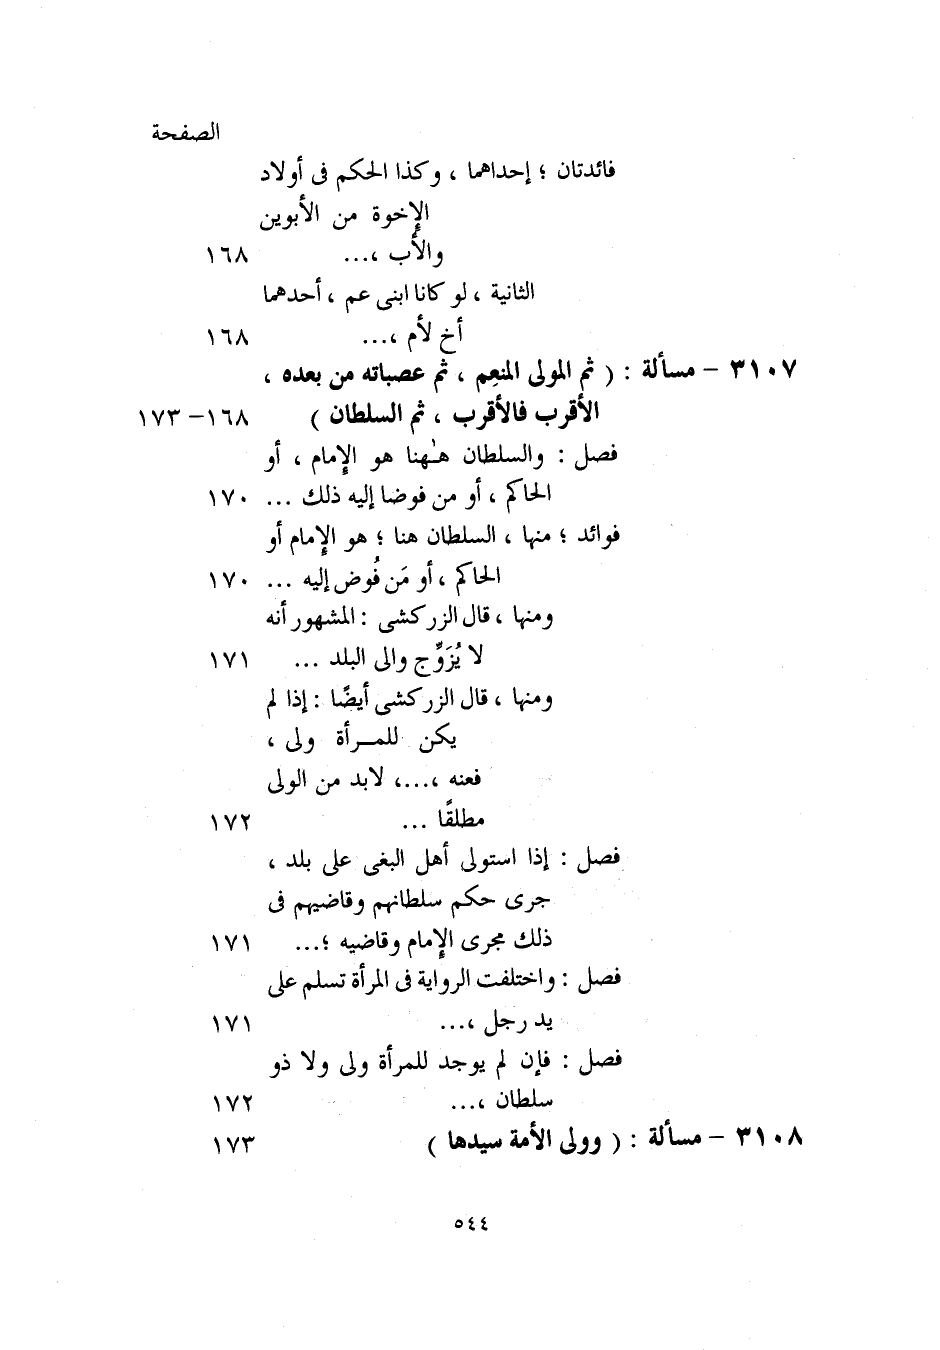 الصفحة
فائدتان ؛ إحداهما ، وكذا الحكم فى أولاد
الإخوة من الأبوين
والأب ،... ١٦٨
الثانية ، لو كانا ابنى عم ، أحدهما
أخ لأم ،... ١٦٨
٣١٠٧ – مسألة : ( ثم المولى المنعِم ، ثم عصباته من بعده ،
الأقرب فالأقرب ، ثم السلطان ) ١٦٨–١٧٣
فصل : والسلطان هٰهنا هو الإمام ، أو
الحاكم ، أو من فوضا إليه ذلك ... ١٧٠
فوائد ؛ منها ، السلطان هنا ؛ هو الإمام أو
الحاكم ، أو مَن فُوض إليه ... ١٧٠
ومنها ، قال الزركشى : المشهور أنه
لا يُزَوِّج والى البلد ... ١٧١
ومنها ، قال الزركشى أيضًا : إذا لم
يكن للمـرأة ولى ،
فعنه ،...، لابد من الولى
مطلقًا ... ١٧٢
فصل : إذا استولى أهل البغى على بلد ،
جرى حكم سلطانهم وقاضيهم فى
ذلك مجرى الإمام وقاضيه ؛... ١٧١
فصل : واختلفت الرواية فى المرأة تسلم على
يد رجل ،... ١٧١
فصل : فإن لم يوجد للمرأة ولى ولا ذو
سلطان ،... ١٧٢
٣١٠٨ – مسألة : ( وولى الأمة سيدها ) ١٧٣
٥٤٤